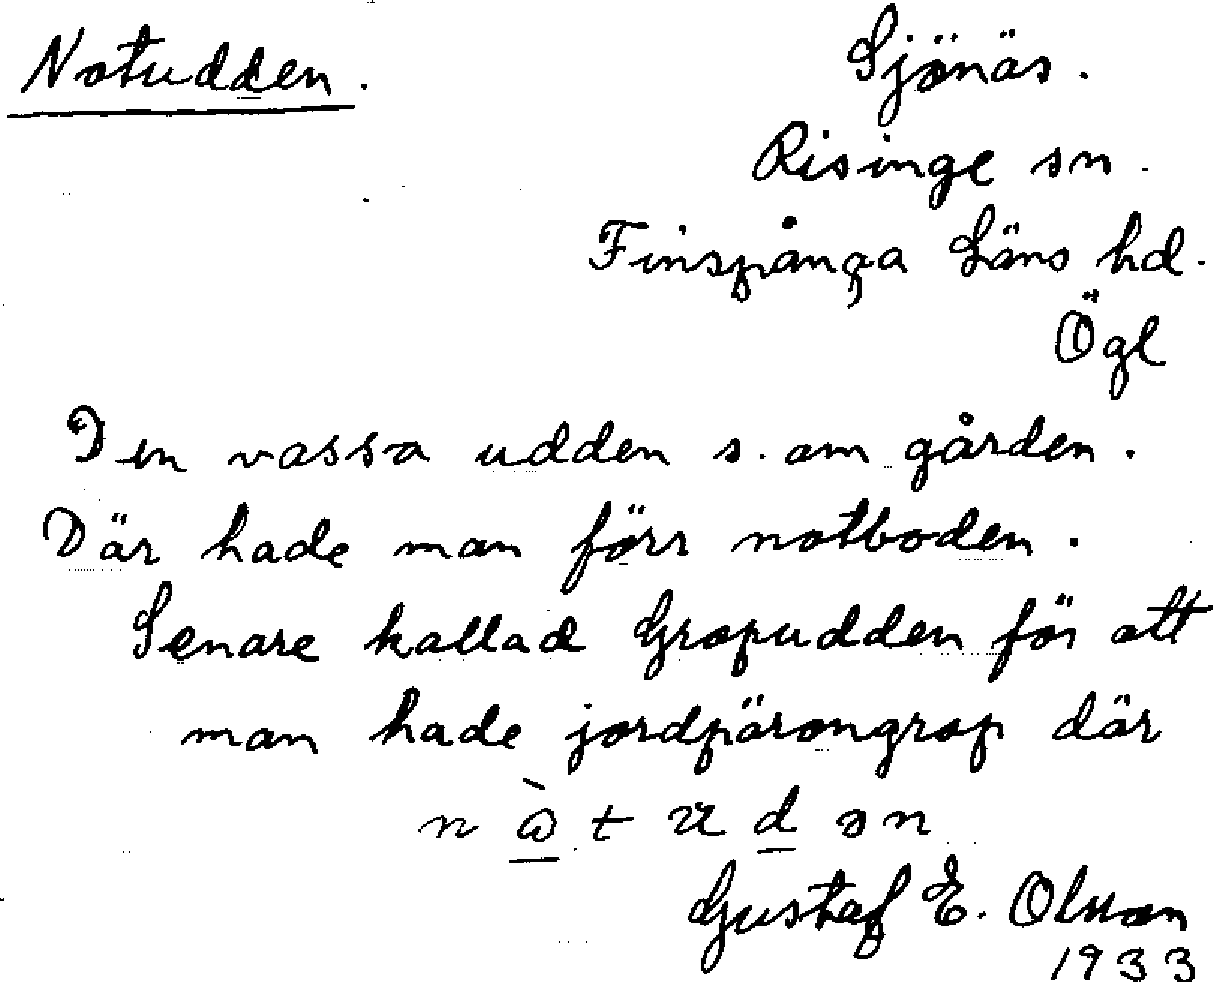 Notudden.
Sjönäs.
Risinge sn.
Finspånga Läns hd.
Ögl
Den vassa udden s. om gården.
Där hade man förr notboden.
Senare kallad Gropudden för att
man hade jordpärongrop där
Gustaf E. Olsson
1933